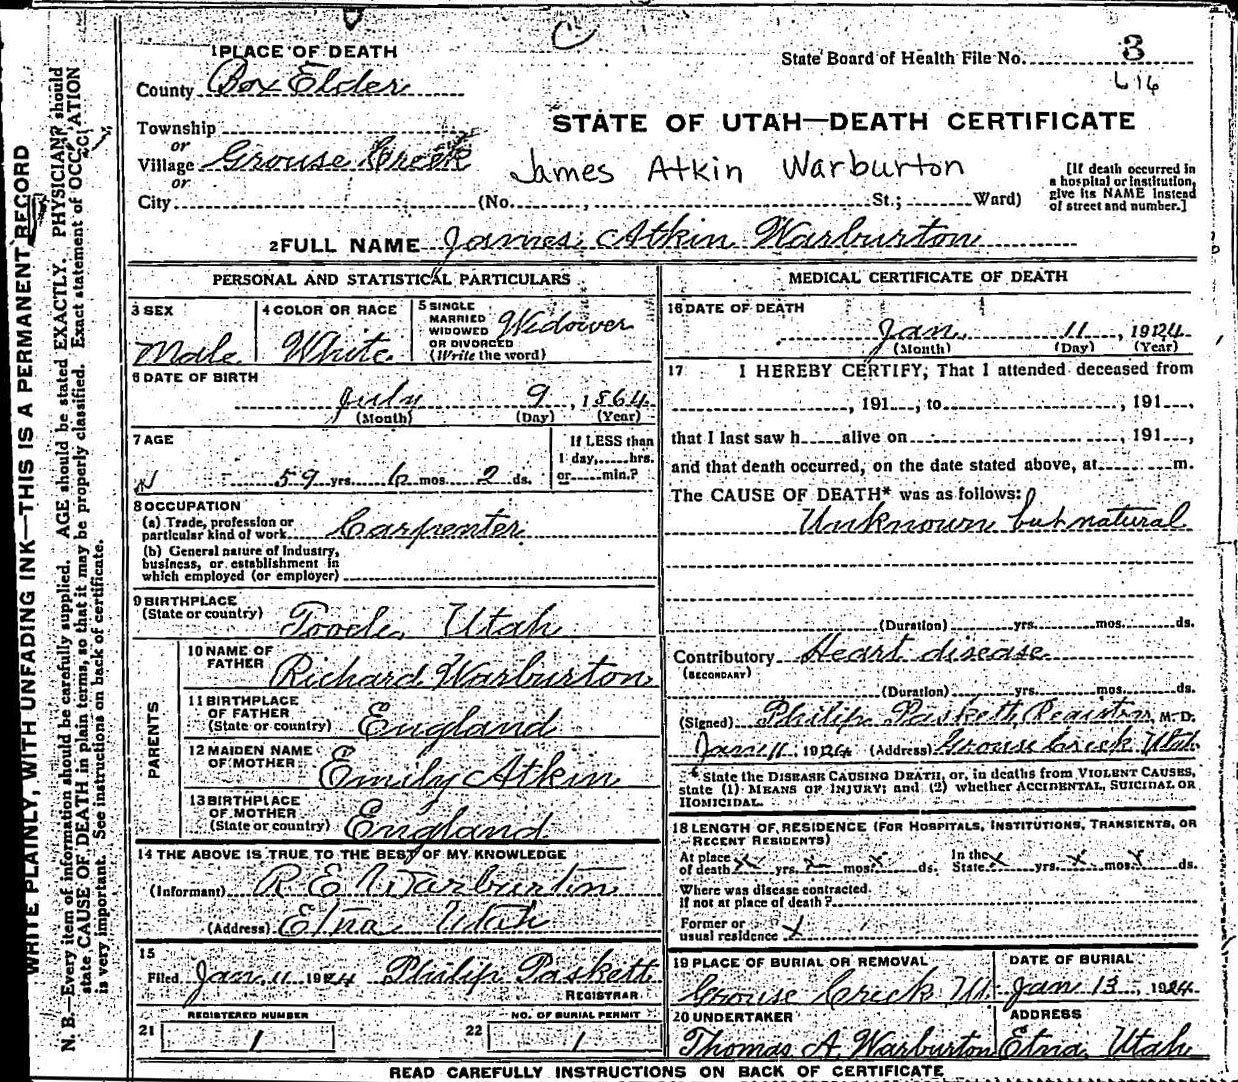 1 PLACE OF DEATH
State Board of Health File No. 3
County Box Elder
L 16
Township
STATE OF UTAH—DEATH CERTIFICATE
or
Village Grouse Creek
James Atkin Warburton
or
City (No. , St.; Ward)
[If death occurred in
a hospital or institution,
give its NAME instead
of street and number.]
2 FULL NAME James Atkin Warburton
PERSONAL AND STATISTICAL PARTICULARS
3 SEX
Male
4 COLOR OR RACE
White
5 SINGLE
MARRIED
WIDOWED
OR DIVORCED
(Write the word)
Widower
6 DATE OF BIRTH
July 9, 1864
(Month) (Day) (Year)
7 AGE
59 yrs. 6 mos. 2 ds.
If LESS than
1 day, hrs.
or min.?
8 OCCUPATION
(a) Trade, profession or
particular kind of work Carpenter
(b) General nature of industry,
business, or establishment in
which employed (or employer)
9 BIRTHPLACE
(State or country) Tooele, Utah
PARENTS
10 NAME OF
FATHER Richard Warburton
11 BIRTHPLACE
OF FATHER
(State or country) England
12 MAIDEN NAME
OF MOTHER Emily Atkin
13 BIRTHPLACE
OF MOTHER
(State or country) England
14 THE ABOVE IS TRUE TO THE BEST OF MY KNOWLEDGE
(Informant) R E Warburton
(Address) Etna Utah
15
Filed Jan. 11 1924 Philip Paskett
REGISTRAR
21 REGISTERED NUMBER
1
22 NO. OF BURIAL PERMIT
1
MEDICAL CERTIFICATE OF DEATH
16 DATE OF DEATH
Jan. 11, 1924
(Month) (Day) (Year)
17 I HEREBY CERTIFY, That I attended deceased from
, 191 , to , 191 ,
that I last saw h alive on , 191 ,
and that death occurred, on the date stated above, at m.
The CAUSE OF DEATH* was as follows:
Unknown but natural
(Duration) yrs. mos. ds.
Contributory Heart disease
(SECONDARY)
(Duration) yrs. mos. ds.
(Signed) Philip Paskett, Registrar, M. D.
Jan. 11, 1924 (Address) Grouse Creek Utah
* State the DISEASE CAUSING DEATH, or, in deaths from VIOLENT CAUSES,
state (1) MEANS OF INJURY; and (2) whether ACCIDENTAL, SUICIDAL OR
HOMICIDAL.
18 LENGTH OF RESIDENCE (FOR HOSPITALS, INSTITUTIONS, TRANSIENTS, OR
RECENT RESIDENTS)
At place
of death x yrs. x mos. x ds. In the
State x yrs. x mos. x ds.
Where was disease contracted.
If not at place of death?
Former or
usual residence x
19 PLACE OF BURIAL OR REMOVAL
Grouse Creek Ut.
DATE OF BURIAL
Jan 13, 1924
20 UNDERTAKER
Thomas A. Warburton
ADDRESS
Etna, Utah
READ CAREFULLY INSTRUCTIONS ON BACK OF CERTIFICATE
WRITE PLAINLY, WITH UNFADING INK—THIS IS A PERMANENT RECORD
N. B.—Every item of information should be carefully supplied. AGE should be stated EXACTLY. PHYSICIANS should
state CAUSE OF DEATH in plain terms, so that it may be properly classified. Exact statement of OCCUPATION
is very important. See instructions on back of certificate.